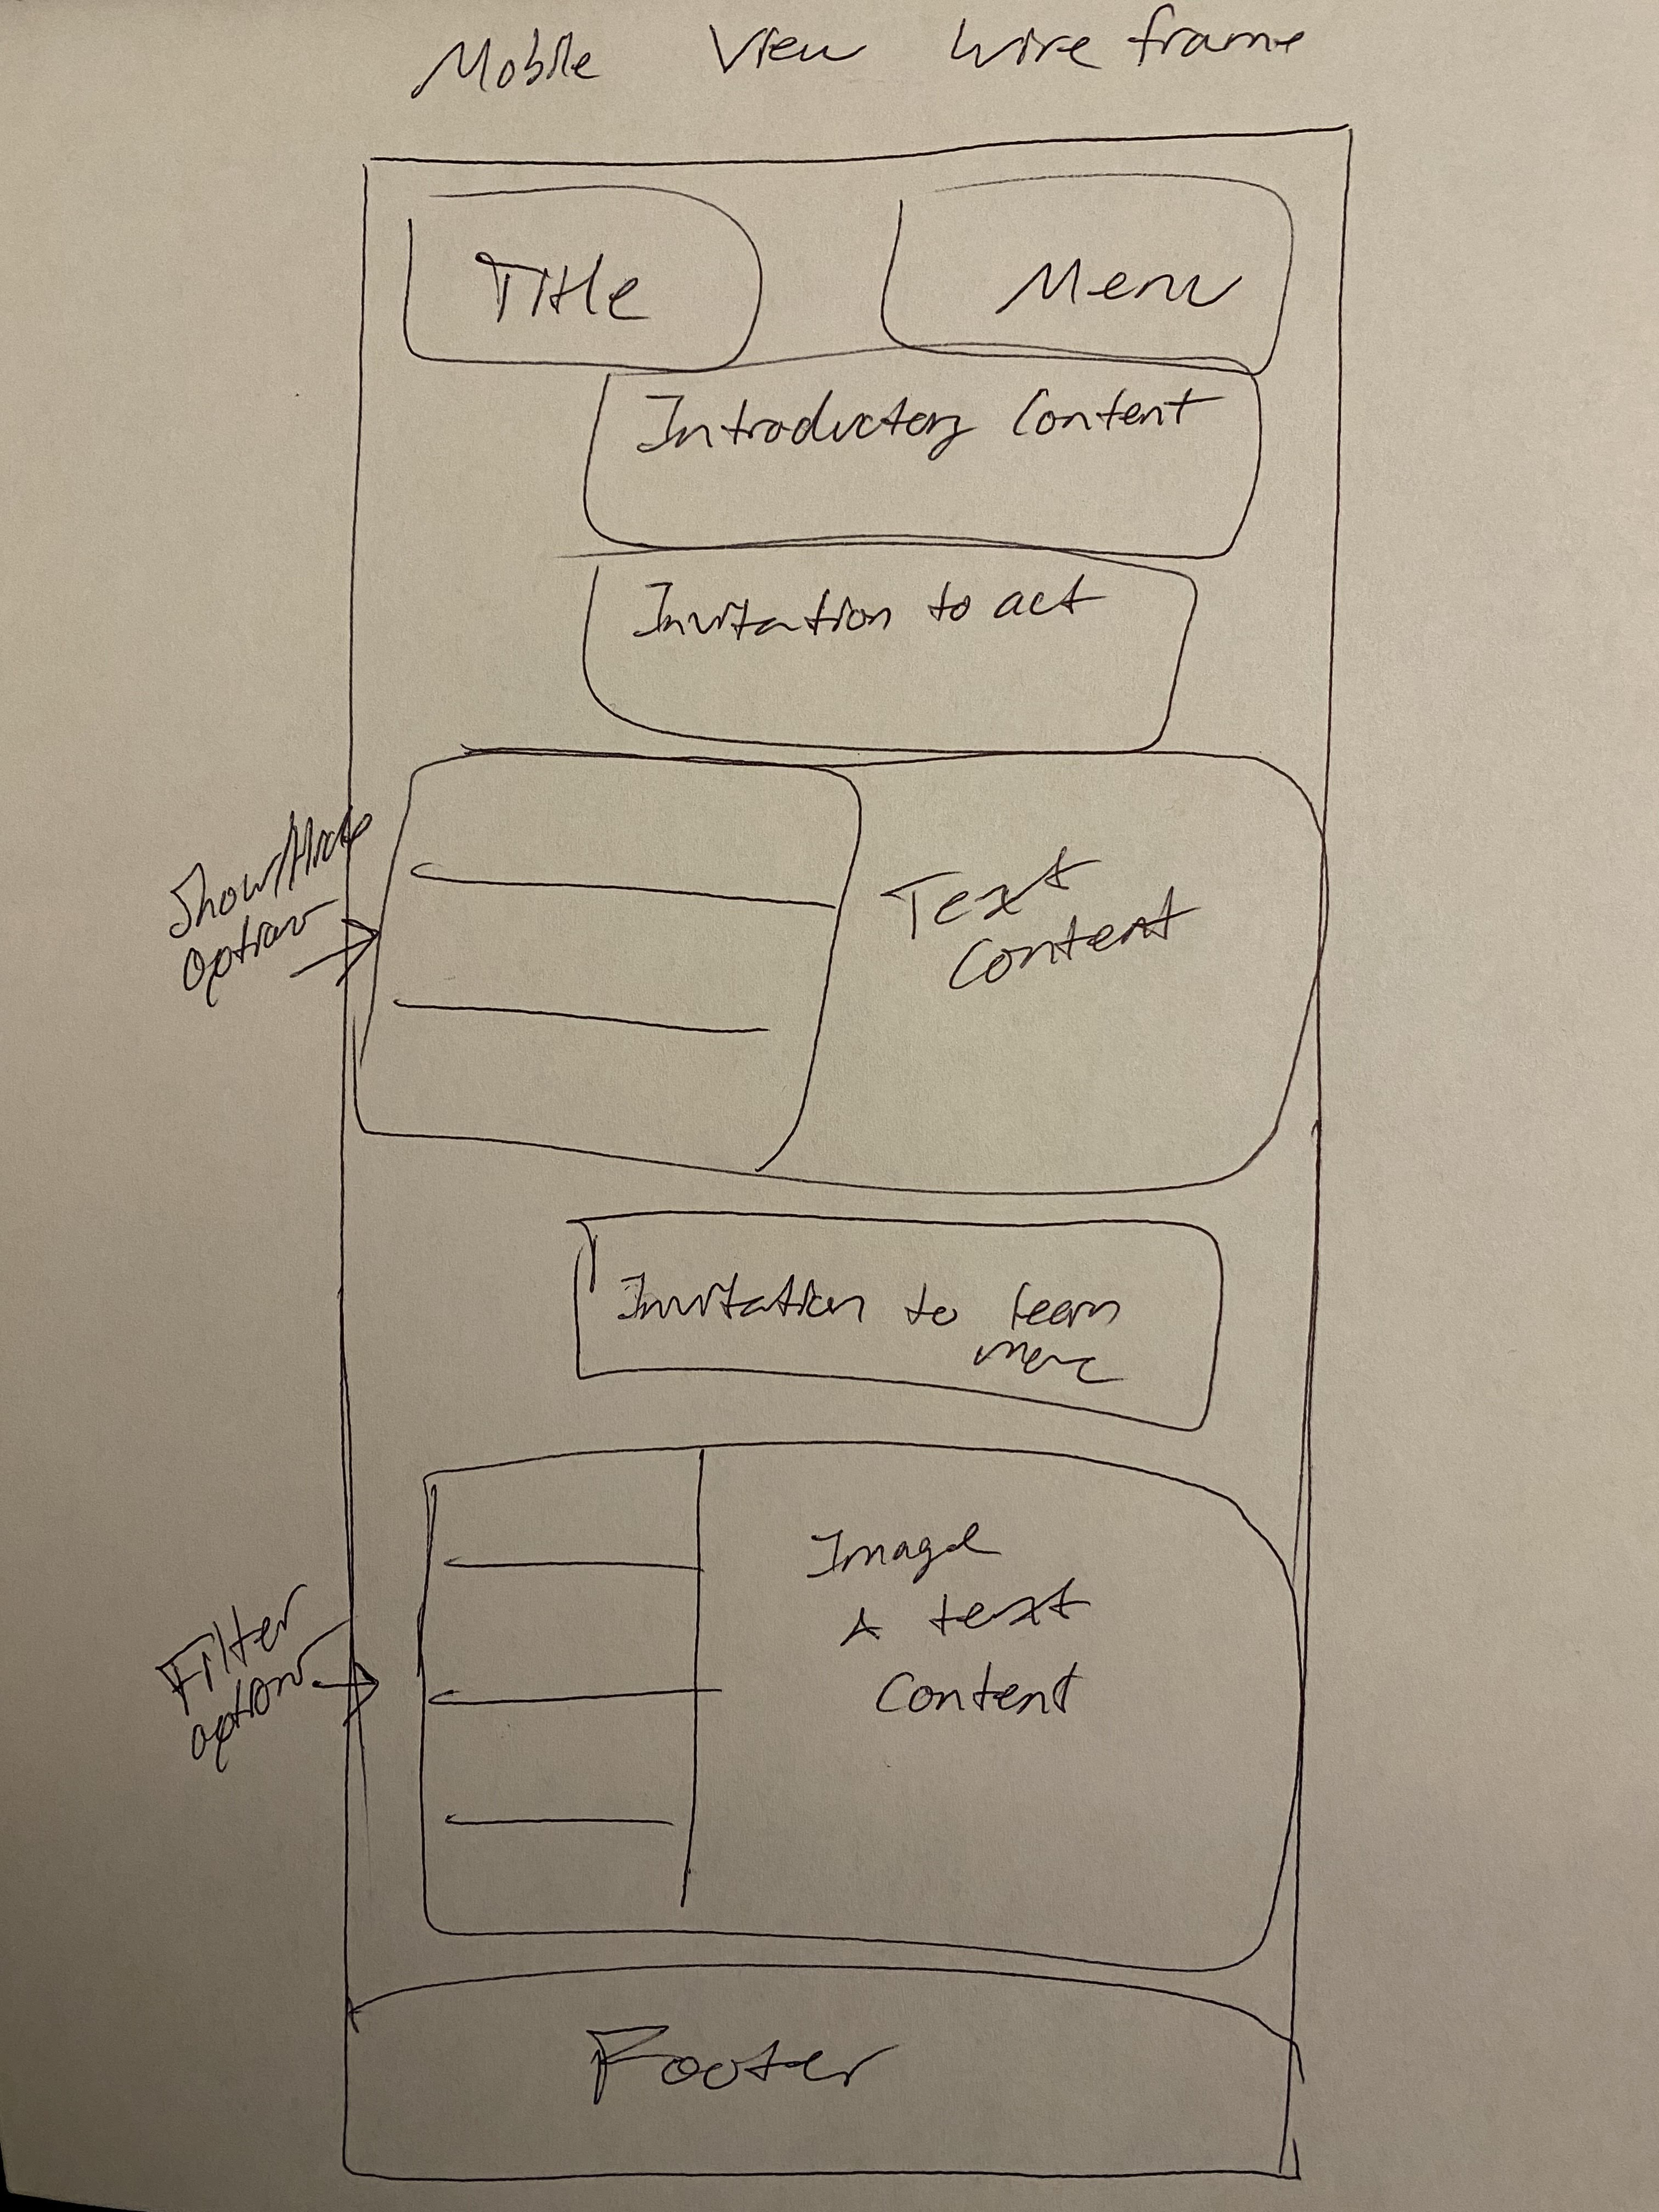 Mobile View Wire frame
Title
Menu
Introductory Content
Invitation to act
Show/Hide
option
Text
Content
Invitation to learn
more
Image
& text
Content
Filter
option
Footer